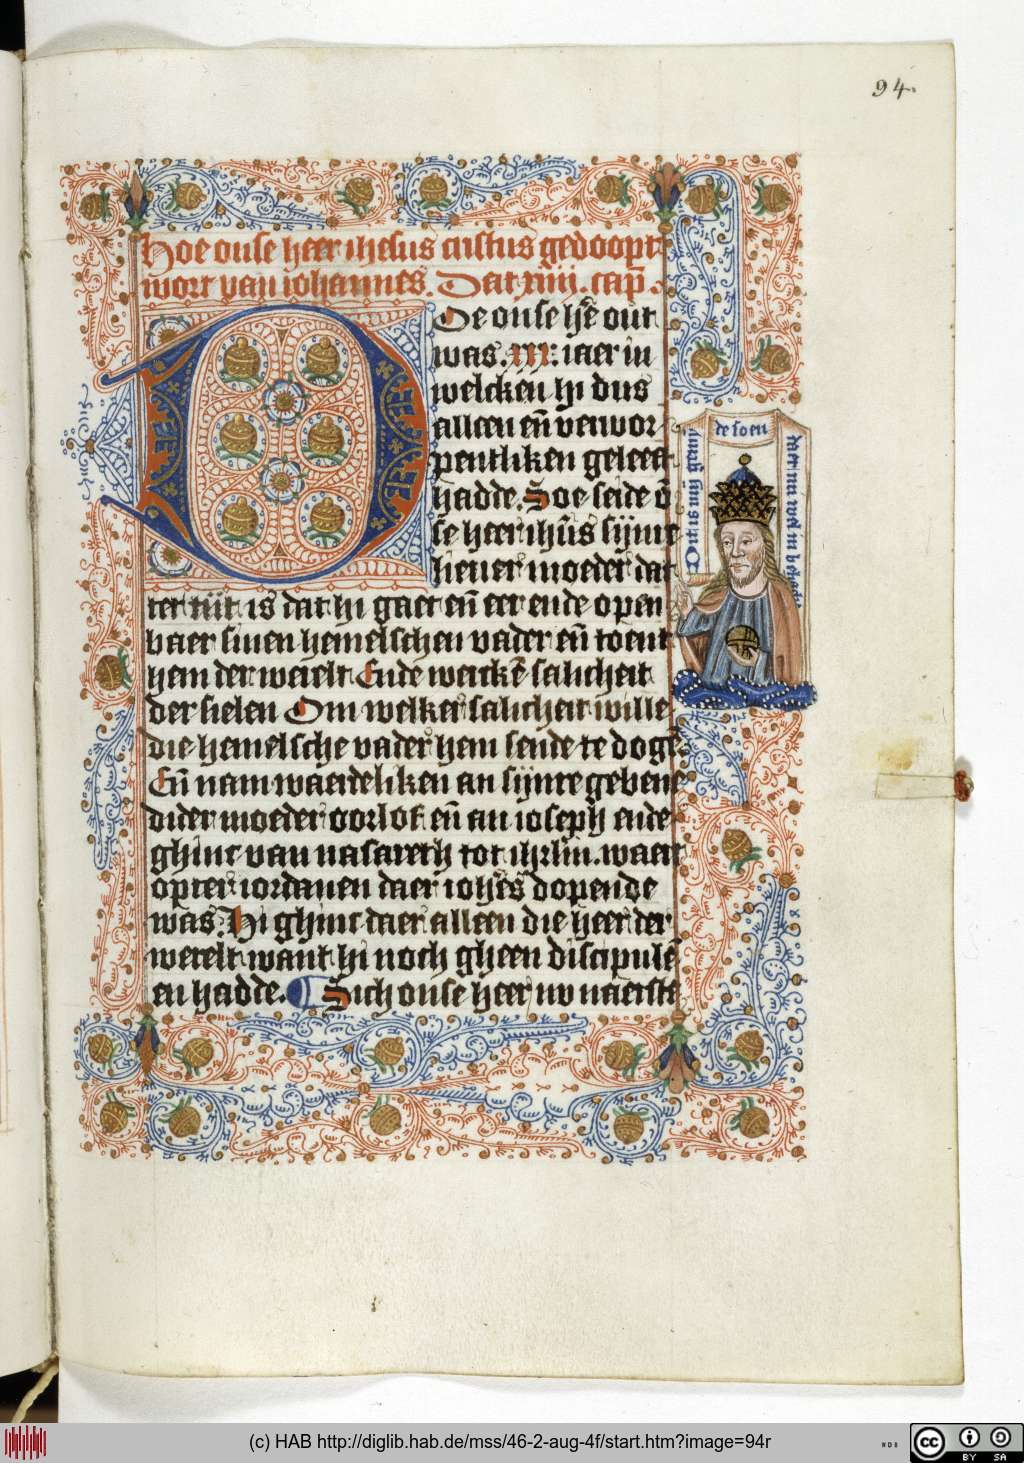 94.
Hoe onse heer ihesus cristus gedoopt
wort van iohannes. Dat xiiij. cap̄.
Doe onse hē out
was. xxx. iaer in
welcken hi dus
alleen en̄ verwor
pentliken geleeft
hadde. Soe seide ō
se heer ihūs sijnre
lieuer moeder dat
ter tijt is dat hi gaet en̄ eer ende open
baer sinen hemelschen vader en̄ toent
hem der werelt Ende wercke̅ salicheit
der sielen Om welker salicheit wille
die hemelsche vader hem sende te doge̅
En̄ nam waerdeliken an sijnre gebene
dider moeder oorlof en̄ an ioseph ende
ghinc van nasareth tot ihrlm. waert
opter iordanen daer iohēs dopende
was. Hi ghinc daer alleen die heer der
werelt want hi noch gheen discipule̅
en hadde. Sich onse heer nv naerste
Dit is mijn gemin
de soen
daer mi wel in behaecht
(c) HAB http://diglib.hab.de/mss/46-2-aug-4f/start.htm?image=94r
cc BY SA